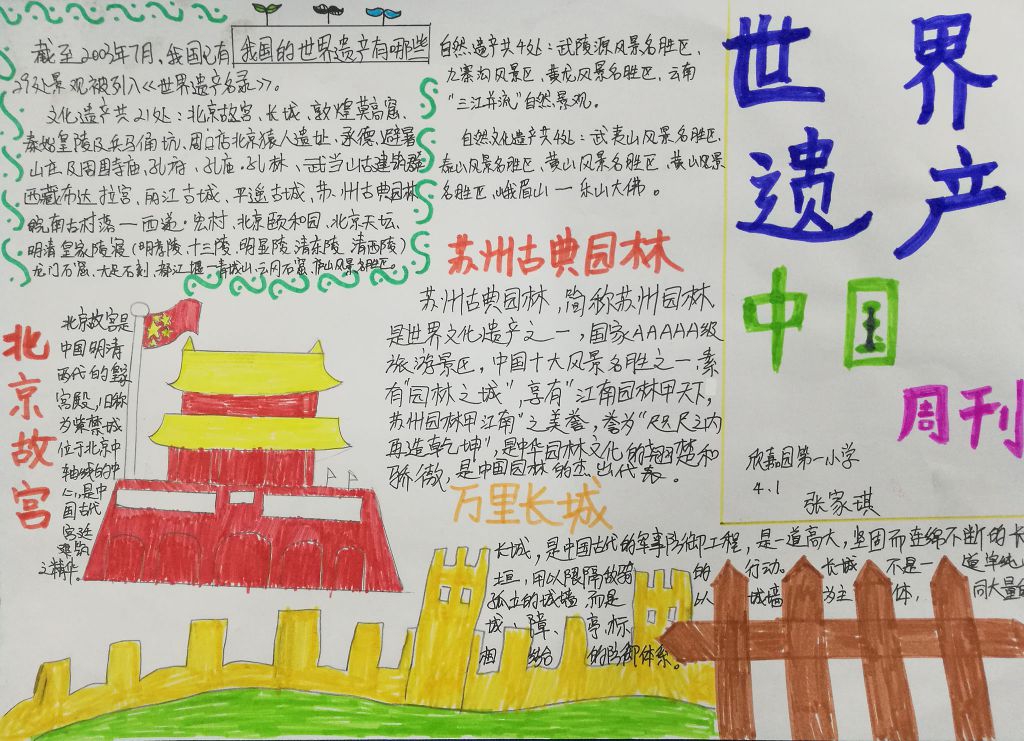 世界
遗产
中国
周刊
欣嘉园第一小学
4.1
张家琪
我国的世界遗产有哪些
截至2003年7月,我国已有
29处景观被列入《世界遗产名录》。
文化遗产共21处:北京故宫、长城、敦煌莫高窟、
秦始皇陵及兵马俑坑、周口店北京猿人遗址、承德避暑
山庄及周围寺庙、孔府、孔庙、孔林、武当山古建筑群
西藏布达拉宫、丽江古城、平遥古城、苏州古典园林
皖南古村落—西递·宏村、北京颐和园、北京天坛、
明清皇家陵寝(明孝陵、十三陵、明显陵、清东陵、清西陵)
龙门石窟、大足石刻、都江堰—青城山、云冈石窟、庐山风景名胜区。
自然遗产共4处:武陵源风景名胜区、
九寨沟风景区、黄龙风景名胜区、云南
“三江并流”自然景观。
自然文化遗产共4处:武夷山风景名胜区、
泰山风景名胜区、黄山风景名胜区、黄山风景
名胜区、峨眉山—乐山大佛。
苏州古典园林
苏州古典园林,简称苏州园林
是世界文化遗产之一,国家AAAAA级
旅游景区,中国十大风景名胜之一,素
有“园林之城”,享有“江南园林甲天下,
苏州园林甲江南”之美誉,誉为“咫尺之内
再造乾坤”,是中华园林文化的翘楚和
骄傲,是中国园林的杰出代表。
北京故宫
北京故宫是
中国明清
两代的皇家
宫殿,旧称
为紫禁城
位于北京中
轴线的中
心,是中
国古代
宫廷
建筑
之精华。
万里长城
长城,是中国古代的军事防御工程,是一道高大,坚固而连绵不断的长
垣,用以限隔敌骑的行动。长城不是一道单纯
孤立的城墙,而是以城墙为主体,同大量的
城、障、亭、标
相结合的防御体系。